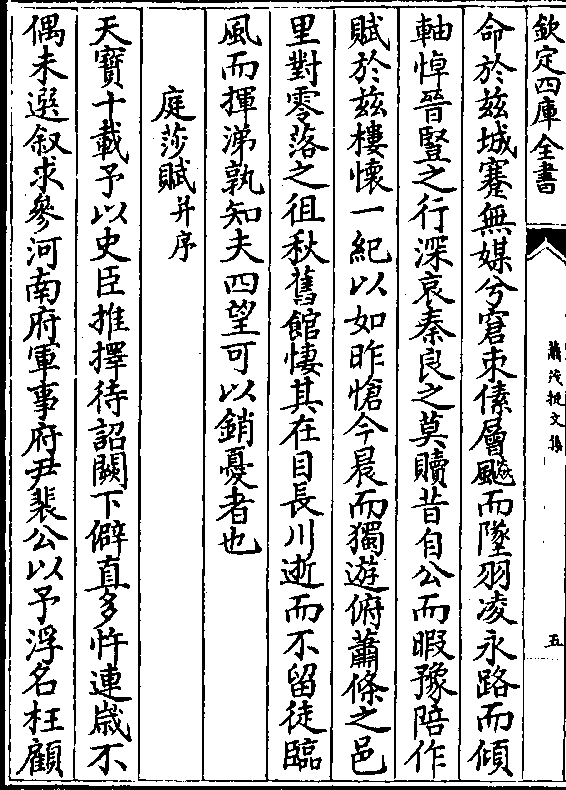 欽定四庫全書
蕭茂挺文集
五
命於兹城蹇無媒兮窘束傃層颷而墜羽凌永路而傾
軸悼晉豎之行深哀秦良之莫贖昔自公而暇豫陪作
賦於兹樓懷一紀以如昨愴今晨而獨遊俯蕭條之邑
里對零落之徂秋舊館悽其在目長川逝而不留徒臨
風而揮涕孰知夫四望可以銷憂者也
庭莎賦并序
天寶十載予以史臣推擇待詔闕下僻直多忤連歲不
偶未選叙求參河南府軍事府尹裴公以予浮名枉顧